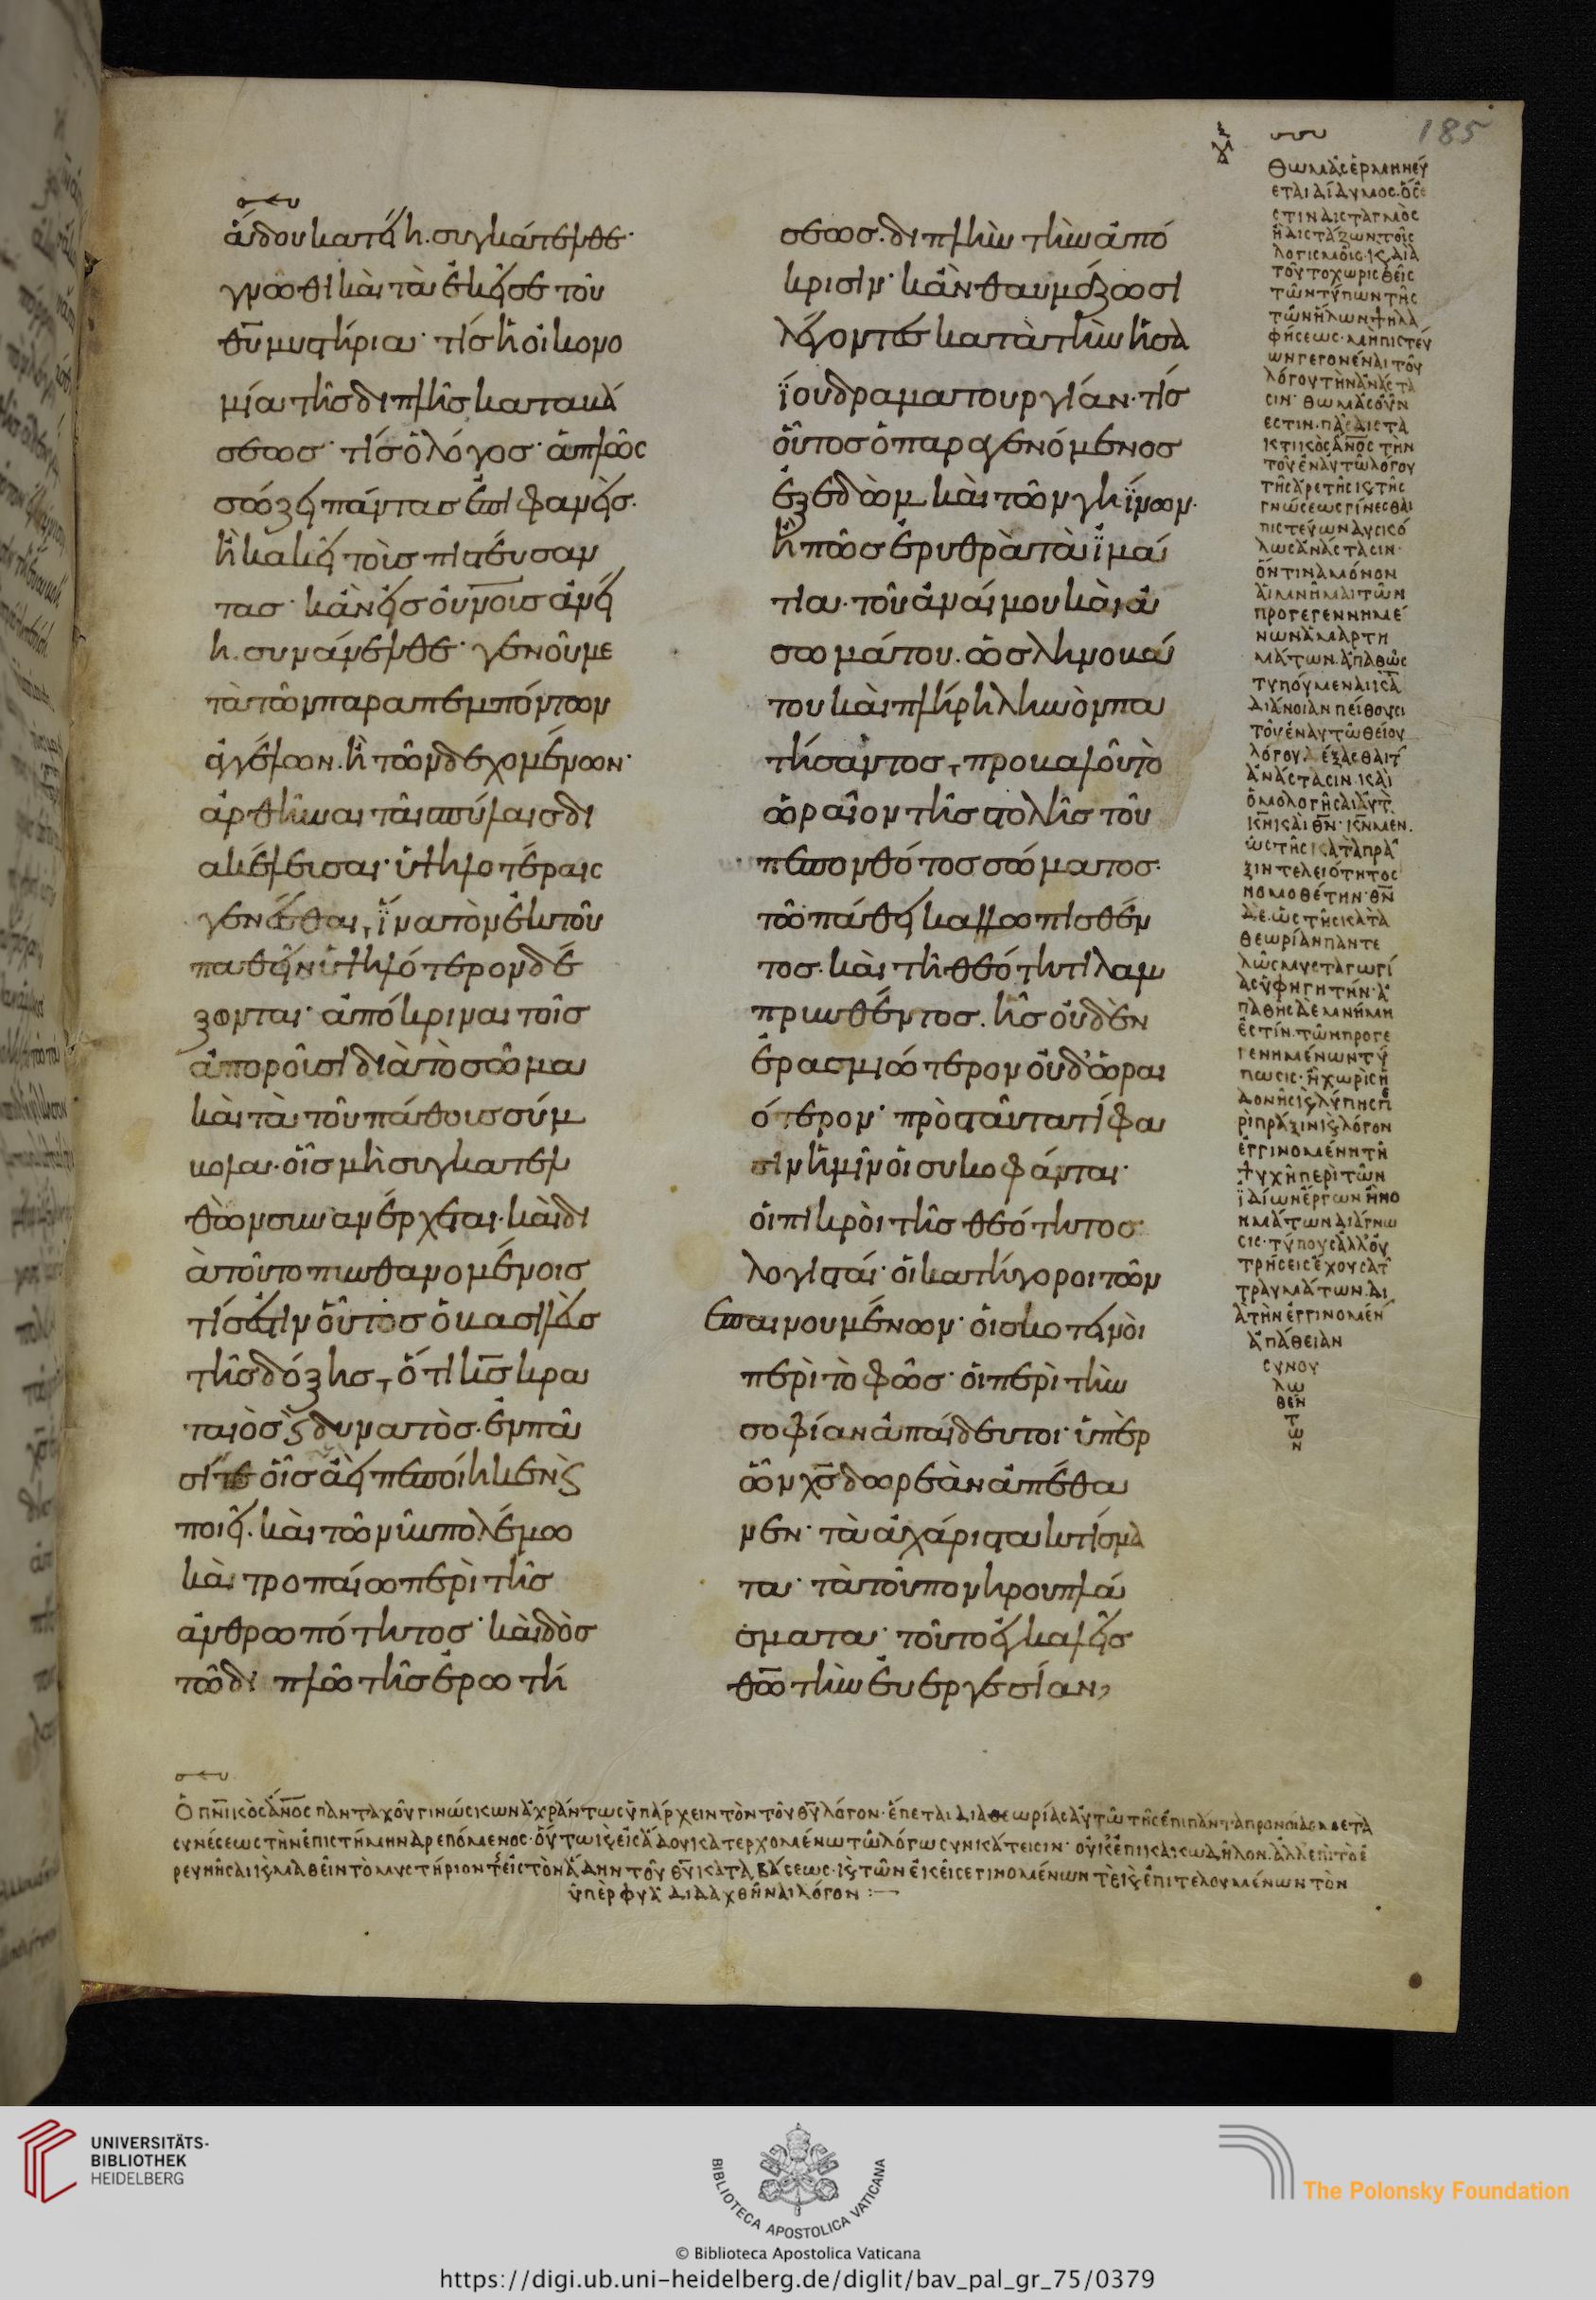 185
ἅιδου κατείηι. συγκάτελθε·
γνῶθι καὶ τὰ ἐκεῖσε τοῦ
θ̅υ̅ μυστήρια· τίς ἡ οἰκονο
μία τῆς διπλῆς καταβά
σεως· τίς ὁ λόγος· ἁπλῶς
σώζει πάντας ἐπιφανεὶς.
ἢ κακεῖ τοὺς πιστεύσαν
τας· κἂν εἰς οὐ̅ν̅ο̅υς ἀνείη
η. συνάνελθε· γενοῦ με
τὰ τῶν παραπεμπόντων
ἀγγέλων. ἢ τῶν δεχομένων·
ἀρθῆναι ταῖς πύλαις δι
ακέλευσαι· ὑψηλοτέραις
γενέσθαι, ἵνα τὸν ἐκ τοῦ
παθεῖν ὑψηλότερον δέ
ξονται· ἀπόκριναι τοῖς
ἀποροῦσι διὰ τὸ σῶμα
καὶ τὰ τοῦ πάθους σύμ
βολα. οἷς μὴ συγκατελ
θὼν συνανέρχεται. καὶ δι
ὰ τοῦτο πυνθανομένοις
τίς ἐστιν οὗτος ὁ βασιλεὺς
τῆς δόξης, ὅτι κ̅ς̅ κρα
ταιὸς ϗ δυνατὸς. ἐν πᾶ
σί τε οἷς ἀεὶ πεποίηκεν ϗ
ποιεῖ. καὶ τῶ νῦν πολέμω
καὶ τροπαίω περὶ τῆς
ἀνθρωπότητος· καὶ δὸς
τῶ διπλῶ τῆς ἐρωτή
σεως. διπλῆν τὴν ἀπό
κρισιν· κἂν θαυμάζωσι
λέγοντες κατὰ τὴν ἡσα
ΐου δραματουργίαν· τίς
οὗτος ὁ παραγενόμενος
ἐξ ἐδὼμ καὶ τῶν γηΐνων.
ἢ πῶς ἐρυθρὰ τὰ ἱμά
τια. τοῦ ἀναίμου καὶ ἀ
σωμάτου. ὡς ληνοβά
του καὶ πλήρη ληνὸν πα
τήσαντος, προβαλοῦ τὸ
ὡραῖον τῆς στολῆς τοῦ
πεπονθότος σώματος·
τῶ πάθει καλλωπισθέν
τος. καὶ τῆ θεότητι λαμ
πρυνθέντος. ἧς οὐδὲν
ἐρασμιώτερον οὐδ' ὡραι
ότερον· πρὸς ταῦτα τί φα
σιν ἡμῖν οἱ συκοφάνται·
οἱ πικροὶ τῆς θεότητος
λογισταί· οἱ κατήγοροι τῶν
ἐπαινουμένων· οἱ σκοτεινοὶ
περὶ τὸ φῶς· οἱ περὶ τὴν
σοφίαν ἀπαίδευτοι· ὑπὲρ
ὧν χ̅ς̅ δωρεὰν ἀπέθα
νεν· τὰ ἀχάριστα κτίσμα
τα· τὰ τοῦ πονηροῦ πλά
σματα· τοῦτο ἐγκαλεῖς
θ̅ω̅ τὴν ἐυεργεσίαν,
Θωμᾶς ἑρμηνεύ
εται δίδυμος. ὅς ἐ
στιν δισταγμὸς
ἢ διστάζων τοῖς
λογισμοῖς. ϗ διὰ
τοῦτο χωρὶς θεῖς
τῶν τύπων τῆς
τῶν ἥλων ψηλα
φήσεως· μὴ πιστεύ
ων γεγονέναι τοῦ
λόγου τὴν ἀνάστα
σιν· θωμᾶς οὖν
ἐστιν. πᾶς διστα
κτικὸς ἄ̅ν̅ο̅ς τὴν
τοῦ ἐν αὐτῶ λόγου
τῆς ἀρετῆς ϗ τῆς
γνώσεως γίνεσθαι
πιστεύων δυσκό
λως ἀνάστασιν·
ὅντινα μόνον
αἱ μνῆμαι τῶν
προγεγεννημέ
νων ἁμαρτη
μάτων. ἀπαθῶς
τυπούμεναι κ̅α̅
διάνοιαν πείθουσι
τοῦ ἐν αὐτῶ θείου
λόγου δέξασθαι τ̅
ἀνάστασιν. καὶ
ὁμολογῆσαι αὐτ
κ̅ν̅ καὶ θ̅ν̅· κ̅ν̅ μεν.
ὡς τῆς κατὰ πρᾶ
ξιν τελειότητος
νομοθέτην· θ̅ν̅
δε. ὡς τῆς κατὰ
θεωρίαν παντε
λῶς μυσταγωγί
ας ὑφηγητήν· ἀ
παθὴς δε μνήμη
ἐστίν. τῶν προγε
γενημένων τύ
πωσις· ἡ χωρὶς ἡ
δονῆς ϗ λύπης πε
ρὶ πρᾶξιν ϗ λόγον
ἐγγινομένη τῆ
ψυχῆ περὶ τῶν
ἰδίων ἔργων ἢ νο
ημάτων διάγνω
σις· τύπους ἀλλ' οὐ
τρήσεις ἔχουσα τ
τραυμάτων. δι
ὰ τὴν ἐγγινομέν
ἀπάθειαν
συνου
λω
θέν
τ
ω
ν
Ὁ π̅ν̅ι̅κὸς ἄ̅ν̅ο̅ς πανταχοῦ γινώσκων ἀχράντως ὑπάρχειν τὸν τοῦ θ̅υ̅ λόγον· ἕπεται δια θεωρίας αὐτῶ τῆς ἐπι πάντα προνοίας μετὰ
συνέσεως τὴν ἐπιστήμην δρεπόμενος· οὕτω ϗ εἰς ἅδου κατερχομένω τῶ λόγω συνκάτεισιν· οὐκ ἐπι κακῶ δῆλον. ἀλλ' ἐπι τὸ ἐ
ρευνῆσαι ϗ μαθεῖν τὸ μυστήριον τ̅ εἰς τὸν ἅδην τοῦ θ̅υ̅ καταβάσεως· ϗ τῶν ἐκεῖσε γινομένων τε ϗ ἐπιτελουμένων τὸν
ὑπὲρφυᾶ διδαχθῆναι λόγον :—
UNIVERSITÄTS-
BIBLIOTHEK
HEIDELBERG
BIBLIOTECA APOSTOLICA VATICANA
The Polonsky Foundation
© Biblioteca Apostolica Vaticana
https://digi.ub.uni-heidelberg.de/diglit/bav_pal_gr_75/0379